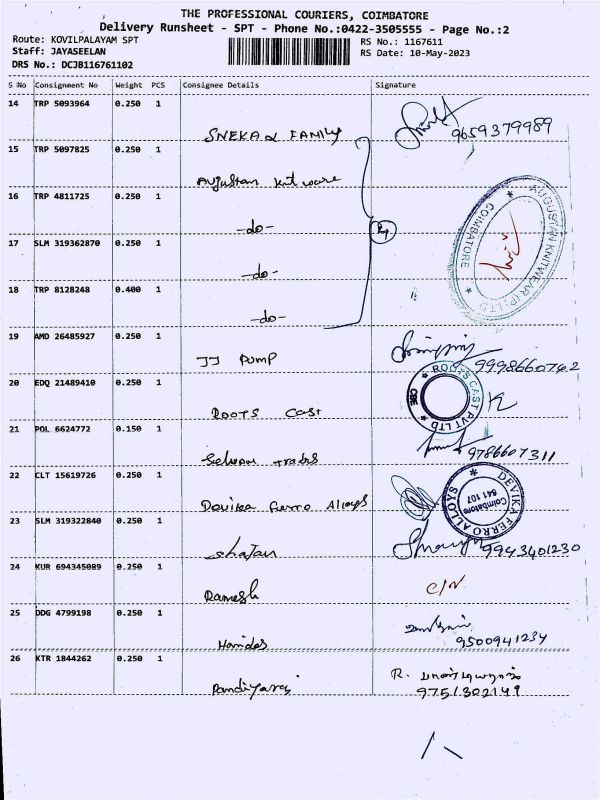 THE PROFESSIONAL COURIERS, COIMBATORE
Delivery Runsheet - SPT - Phone No.:0422-3505555 - Page No.:2
Route: KOVILPALAYAM SPT
RS No.: 1167611
Staff: JAYASEELAN
RS Date: 10-May-2023
DRS No.: DCJB116761102
S No Consignment No Weight PCS Consignee Details Signature
14 TRP 5093964 0.250 1
SNEKA & FAMILY 9659379989
15 TRP 5097825 0.250 1
Augustan knit ware
16 TRP 4811725 0.250 1
-do-
AUGUSTAN KNITWEAR (P) LTD
COIMBATORE
17 SLM 319362870 0.250 1
-do-
18 TRP 8128248 0.400 1
-do-
19 AMD 26485927 0.250 1
JJ PUMP
20 EDQ 21489410 0.250 1
ROOTS CAST PVT LTD
CBE
ROOTS Cast
21 POL 6624772 0.150 1
9786607311
22 CLT 15619726 0.250 1
Devika Ferro Alloys
DEVIKA FERRO ALLOYS
Coimbatore
641 107
23 SLM 319322840 0.250 1
Shajan 9943401230
24 KUR 694345089 0.250 1
Ramesh
25 DDG 4799198 0.250 1
Haridas 9500941234
26 KTR 1844262 0.250 1
Pandiyaraj 9751302149